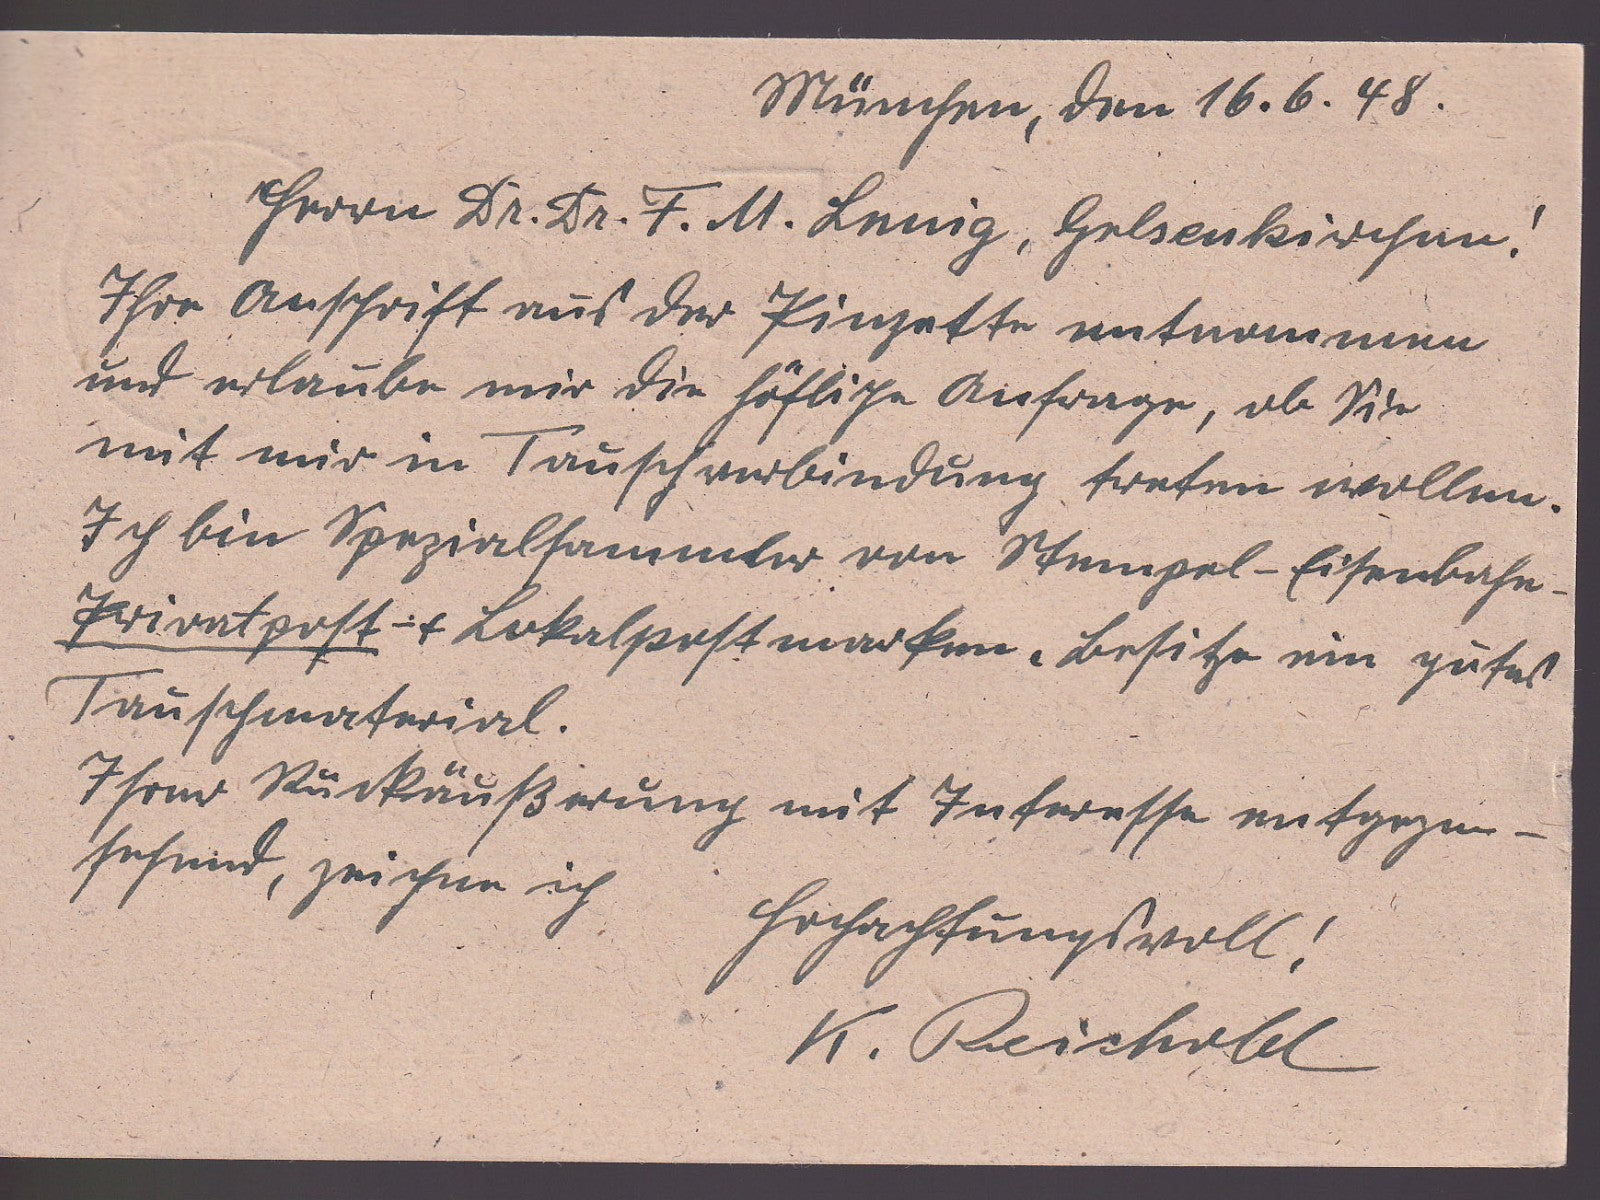 München, den 16. 6. 48.
Herrn Dr. Dr. F. M. Lennig, Gelsenkirchen!
Ihre Anschrift aus der Pinzette entnommen
und erlaube mir die höfliche Anfrage, ob Sie
mit mir in Tauschverbindung treten wollen.
Ich bin Spezialsammler von Stempel-Eisenbahn-
Privatpost- + Lokalpostmarken. Besitze ein gutes
Tauschmaterial.
Ihrer Rückäußerung mit Interesse entgegen-
sehend, zeichne ich
Hochachtungsvoll!
K.